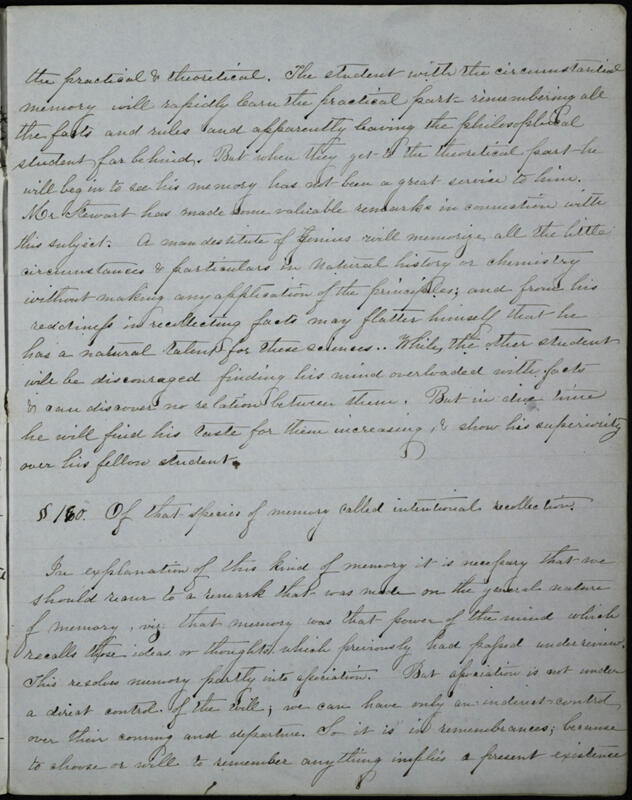 the practical & theoretical. The student with the circumstantial
memory will rapidly learn the practical part remembering all
the facts and rules and apparently leaving the philosophical
student far behind. But when they get to the theoretical part he
will begin to see his memory has not been a great service to him.
Mr Stewart has made some valuable remarks in connection with
this subject. A man destitute of genius will memorize all the little
circumstances & particulars in natural history or chemistry
without making any application of the principles; and from his
readiness in recollecting facts may flatter himself that he
has a natural talent for these sciences. While, the other student
will be discouraged finding his mind overloaded with facts
& can discover no relation between them. But in due time
he will find his taste for them increasing, & show his superiority
over his fellow student.
§§ 180. Of that species of memory called intentional recollection.
In explanation of this kind of memory it is necessary that we
should recur to a remark that was made on the general nature
of memory, viz; that memory was that power of the mind which
recalls those ideas or thoughts which previously had passed under review.
This resolves memory partly into association. But association is not under
a direct control of the will; we can have only an indirect control
over their coming and departure. So it is in remembrances; because
to choose or will to remember anything implies a present existence